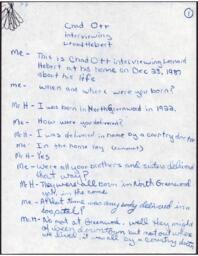 ①
Chad Ott
interviewing
Leonard Hebert
Me - This is Chad Ott interviewing Leonard
Hebert at his home on Dec 23, 1987
about his life
me - when and where were you born?
Mr H - I was born in North Greenwood in 1922.
Me - How were you delivered?
Mr H - I was delivered in home by a country doctor
Me - In the home key
Mr H - Yes
Me - Were all your brothers and sisters delivered
that way?
Mr H - They were all born in North Greenwood
in the home
Me - At that time was anybody delivered in a
hospital?
Mr H - No not at Greenwood. well they might
of been downtown but not out where
we lived it was all by a country doctor